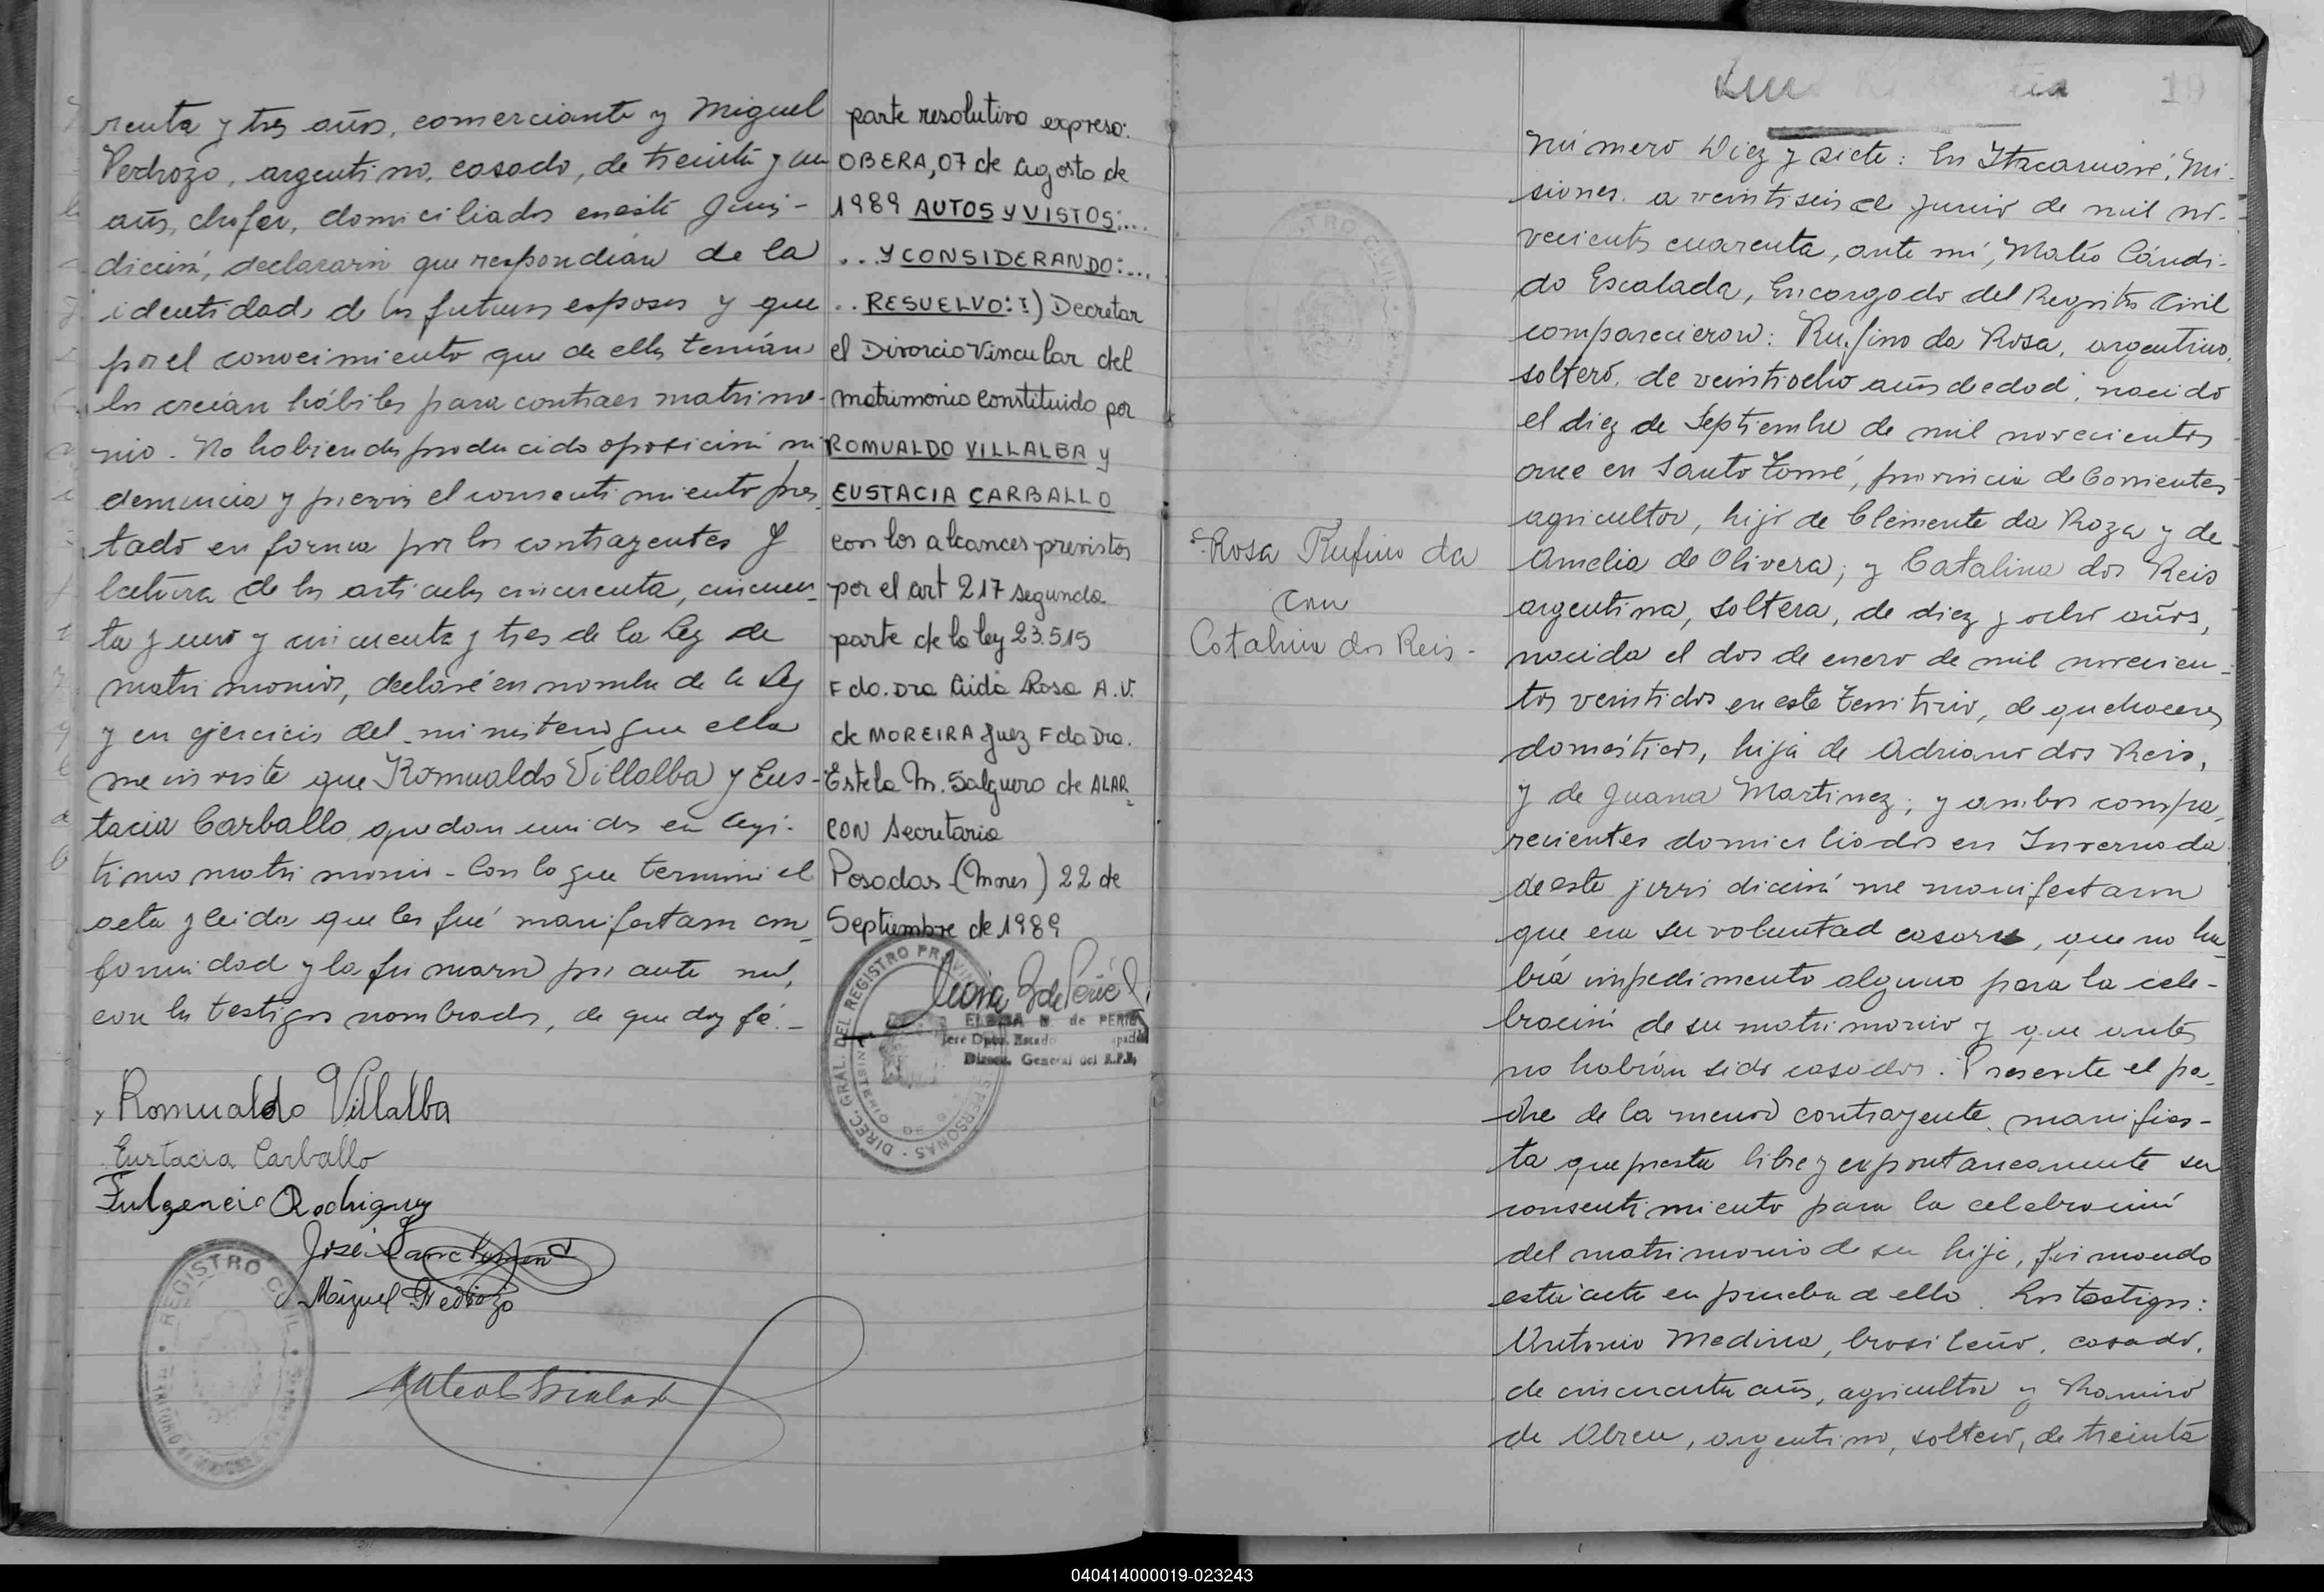 renta y tres años, comerciante y Miguel
Pedrozo, argentino, casado, de treinta y un
años, chofer, domiciliados en esta juris-
dicción, declararon que respondían de la
identidad de los futuros esposos y que
por el conocimiento que de ellos tenían
los creían hábiles para contraer matrimo-
nio. No habiendo producido oposición ni
denuncia y previo el consentimiento pres
tado en forma por los contrayentes y
lectura de los artículos cincuenta, cincuen-
ta y uno y cincuenta y tres de la Ley de
matrimonio, declaré en nombre de la Ley
y en ejercicio del ministerio que ella
me inviste que Romualdo Villalba y Eus-
tacia Carballo quedan unidos en legí-
timo matrimonio. Con lo que terminó el
acta y leida que les fué manifestaron con
formidad y la firmaron por ante mí,
con los testigos nombrados, de que doy fé.-
Romualdo Villalba
Eustacia Carballo
Fulgencio Rodriguez
José
Miguel Pedrozo
REGISTRO CIVIL
parte resolutiva expresa:
OBERA, 07 de Agosto de
1989 AUTOS Y VISTOS:...
...Y CONSIDERANDO:...
..RESUELVO: I) Decretar
el Divorcio Vincular del
matrimonio constituido por
ROMUALDO VILLALBA y
EUSTACIA CARBALLO
con los alcances previstos
por el art 217 segunda
parte de la ley 23.515
Fdo. Dra Aida Rosa A. V.
de MOREIRA Juez Fdo Dra.
Estela M. Salguero de ALAR
CON Secretaria
Posadas (Mnes) 22 de
Septiembre de 1989
DIREC. GRAL. DEL REGISTRO PROVIN PERSONAS
de PERIE
Jefe Dpto. Estado
Direcc. General del R.P.P.
19
Número Diez y siete: En Itacaruaré, Mi-
siones, a veintiseis de Junio de mil no-
vecientos cuarenta, ante mí, Matéo Cándi-
do Escalada, Encargado del Registro Civil
comparecieron: Rufino da Rosa, argentino,
soltero, de veintiocho años de edad, nacido
el diez de Septiembre de mil novecientos
once en Santo Tomé, provincia de Corrientes
agricultor, hijo de Clemente da Roza y de
Amelia de Olivera; y Catalina dos Reis
argentina, soltera, de diez y ocho años,
nacida el dos de enero de mil novecien-
tos veintidos en este Territorio, de quehaceres
domésticos, hija de Adriano dos Reis,
y de Juana Martinez; y ambos compa
recientes domiciliados en Invernada
de esta jurisdicción me manifestaron
que era su voluntad casarse, que no ha
bía impedimento alguno para la cele-
bración de su matrimonio y que antes
no habían sido casados. Presente el pa
dre de la menor contrayente, manifies-
ta que presta libre y expontaneamente su
consentimiento para la celebración
del matrimonio de su hija, firmando
esta acta en prueba de ello. Los testigos:
Antonio Medina, brasileño, casado,
de cincuenta años, agricultor y Ramiro
de Abreu, argentino, soltero, de treinta
Rosa Rufino da
con
Catalina dos Reis-
040414000019-023243